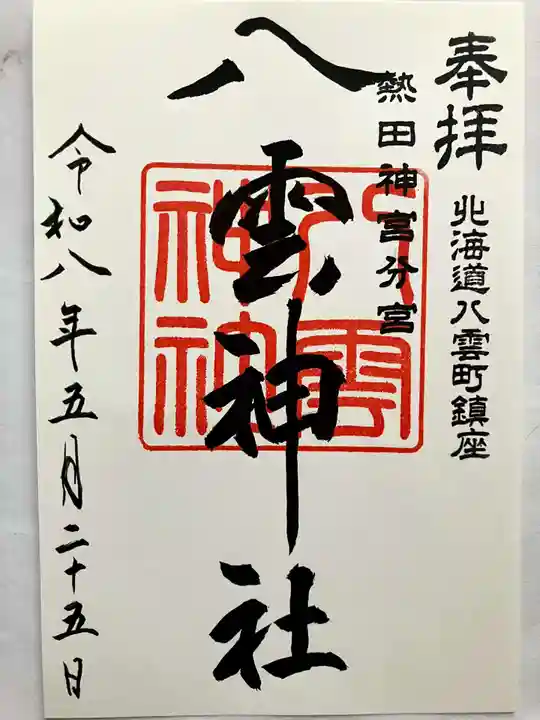 奉拝
北海道八雲町鎮座
熱田神宮分宮
八雲神社
令和八年五月二十五日